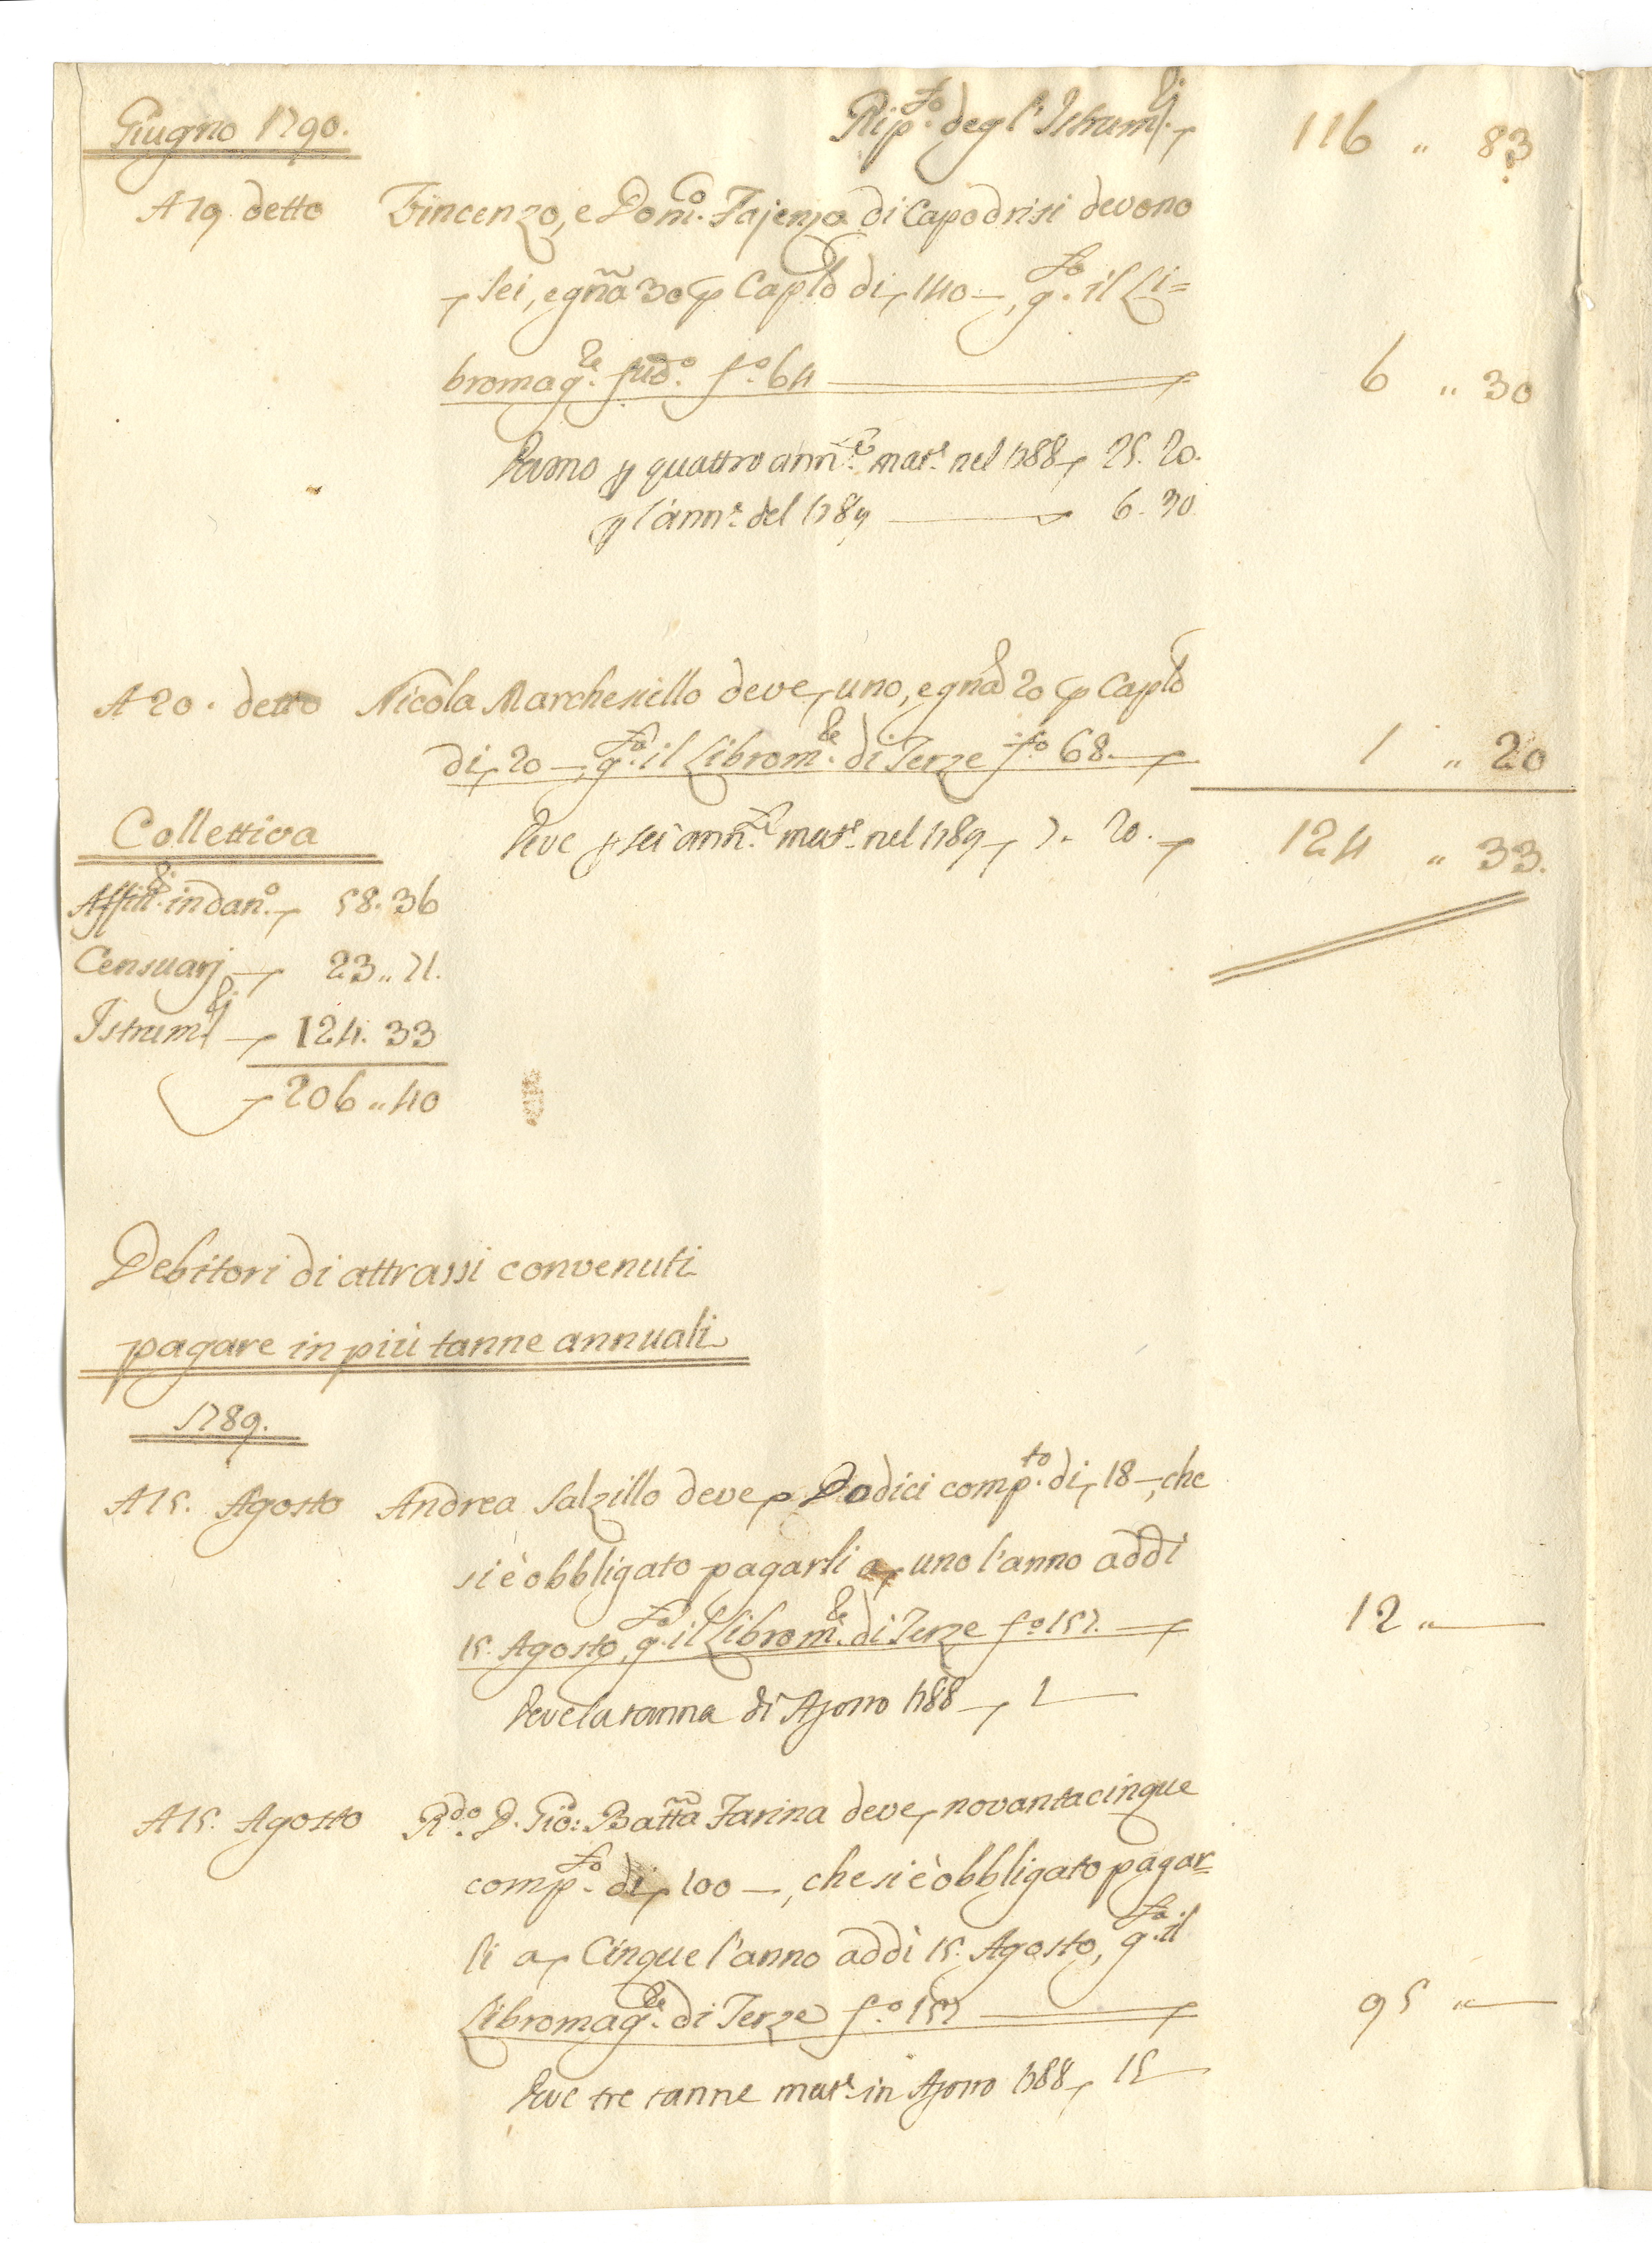 Giugno 1790. Rip.to degl'Istrum.ti 116 " 83
A 19. detto Vincenzo, e Dom.co Tajenza di Capodrisi devono
sei, e gña 30 p Cap.le di 140 —, q.to il Li=
bromag.le sud.o f.o 64 6 " 30
Devono p quattro ann.te mat.e nel 1788 25. 20.
p l'ann.a del 1789 6. 30
A 20. detto Nicola Marchesiello deve uno, e gña 20 p Cap.le
di 20 —, q.to il Librom.le di Terze f.o 68. 1 " 20
Deve p sei ann.te mat.e nel 1789 7. 20. 124 " 33.
Collettiva
Affitti in dan.o 58. 36
Censuarj 23 .. 71.
Istrum.ti 124. 33
206 .. 40
Debitori di attrassi convenuti
pagare in più tanne annuali
1789.
A 15. Agosto Andrea Salzillo deve Dodici comp.to di 18 —, che
si è obbligato pagarli a uno l'anno addì
15. Agosto, q.to il Librom.le di Terze f.o 157. 12 " —
Deve la tanna di Agosto 1788 1 —
A 15. Agosto R.do D. Gio: Batta Farina deve novantacinque
comp.to di 100 —, che si è obbligato pagar=
li a Cinque l'anno addì 15. Agosto, q.to il
Libromag.le di Terze f.o 157 95 " —
Deve tre tanne mat.e in Agosto 1788 15 —